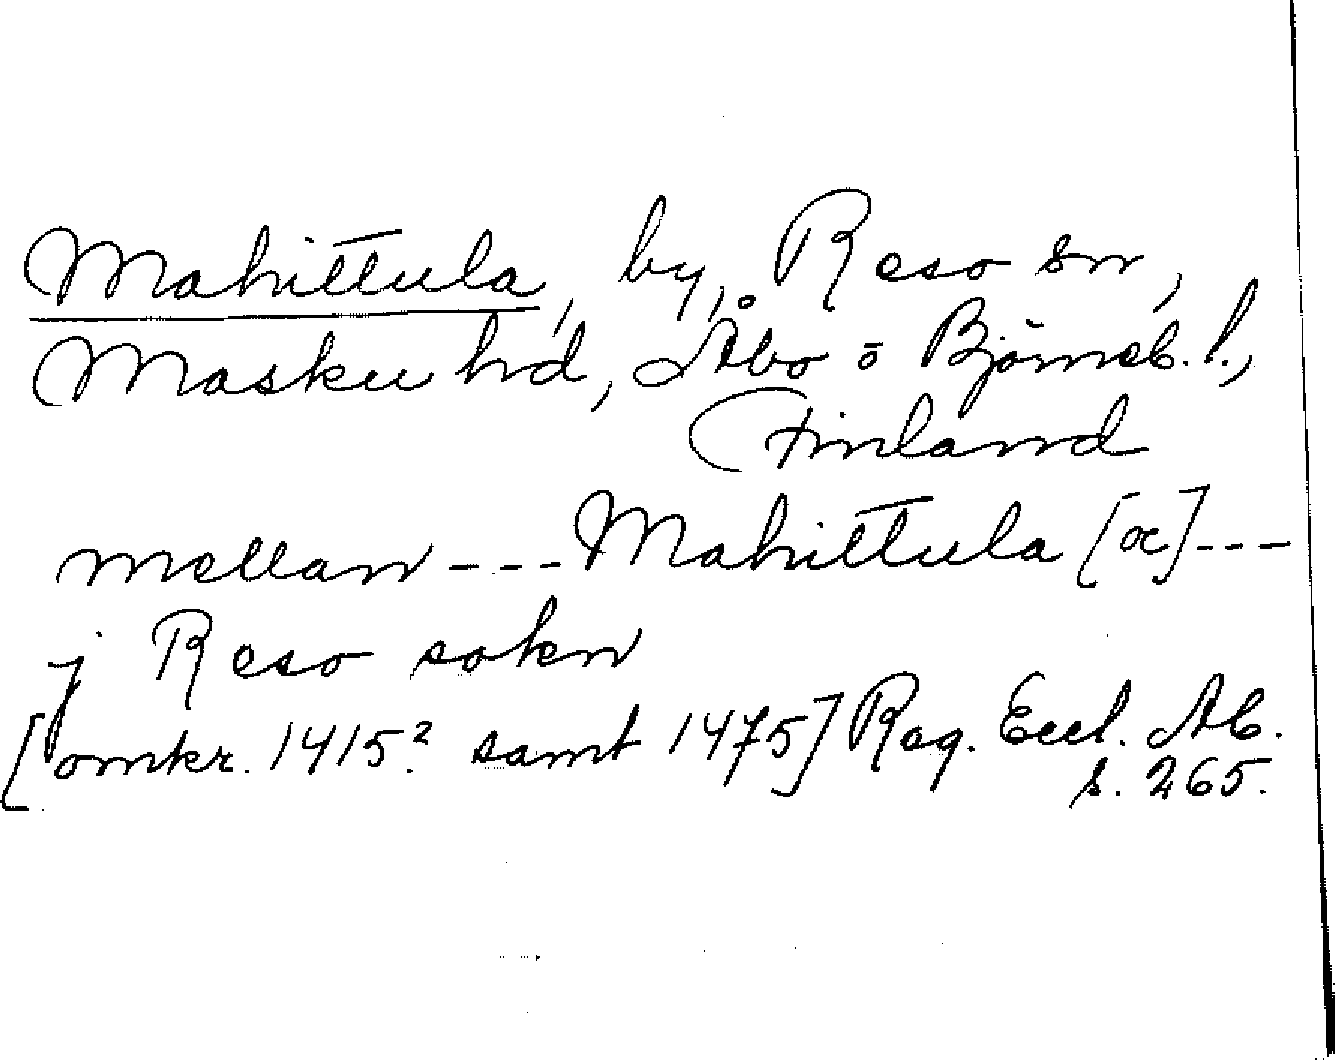 Mahittula, by, Reso sn,
Masku hd, Åbo o Björneb. l.,
Finland
mellan --- Mahittula [oc] ---
j Reso sokn
[omkr. 1415? samt 1475] Reg. Eccl. Ab.
s. 265.